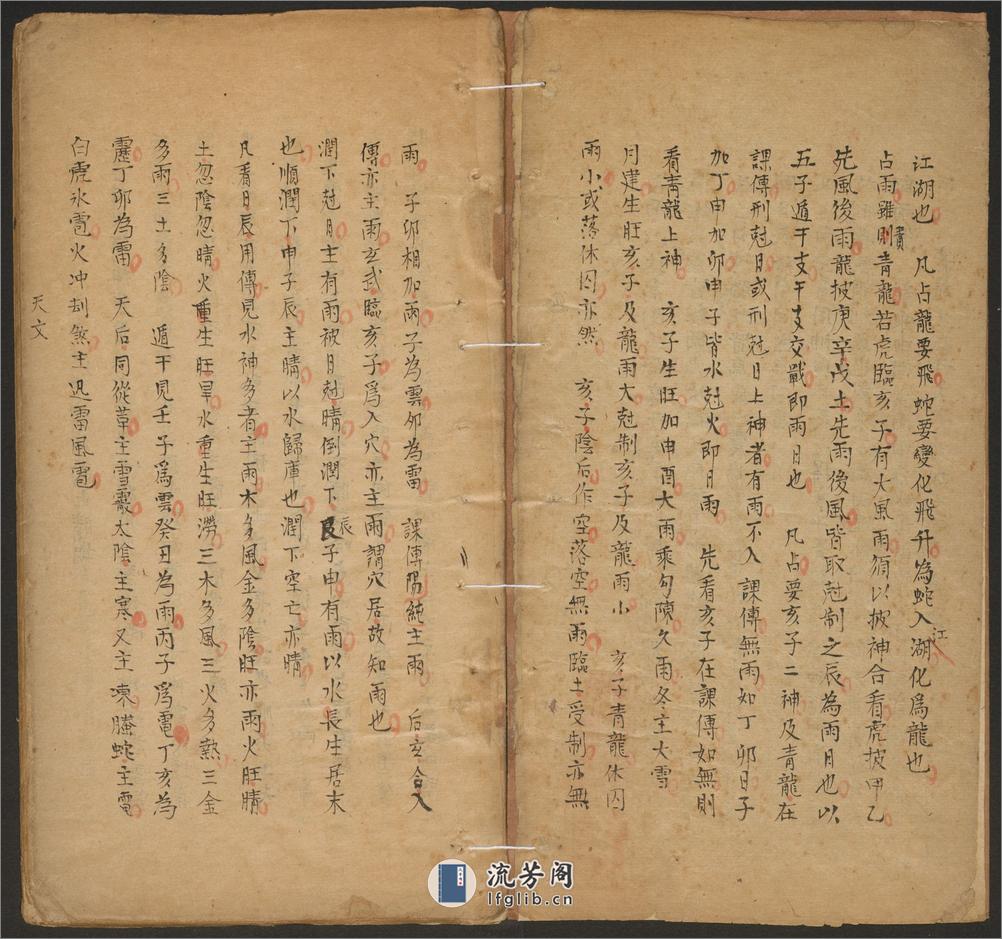 江湖也　凡占龍要飛蛇要變化飛升為蛇入江湖化為龍也
占雨雖則貴青龍若虎臨亥子有大風雨須以披神合看虎披甲乙
先風後雨龍披庚辛戊土先雨後風皆取尅制之辰為雨日也以
五子遁干支干支交戰即雨日也　凡占要亥子二神及青龍在
課傳刑尅日或刑尅日上神者有雨不入課傳無雨如丁卯日子
加丁申加卯申子皆水尅火即日雨　先看亥子在課傳如無則
看青龍上神　亥子生旺加申酉大雨乘勾陳久雨冬主大雪
月建生旺亥子及龍雨大尅制亥子及龍雨小　亥子青龍休囚
雨小或落休囚亦然　亥子陰后作空落空無雨臨土受制亦無
雨　子卯相加雨子為雲卯為雷　課傳陽純主雨　后玄合入
傳亦主雨玄武臨亥子為入穴亦主雨謂穴居故知雨也
潤下尅日主有雨被日尅晴倒潤下辰子申有雨以水長生居末
也順潤下申子辰主晴以水歸庫也潤下空亡亦晴
凡看日辰用傳見水神多者主雨木多風金多陰旺亦雨火旺晴
土忽陰忽晴火重生旺旱水重生旺澇三木多風三火多熱三金
多雨三土多陰　遁干見壬子爲雲癸丑為雨丙子爲電丁亥為
霻丁卯為雷　天后同從革主雪霰太陰主寒又主凍螣蛇主電
白虎氷雹火冲刧煞主迅雷風雹
天文
流芳阁
lfglib.cn